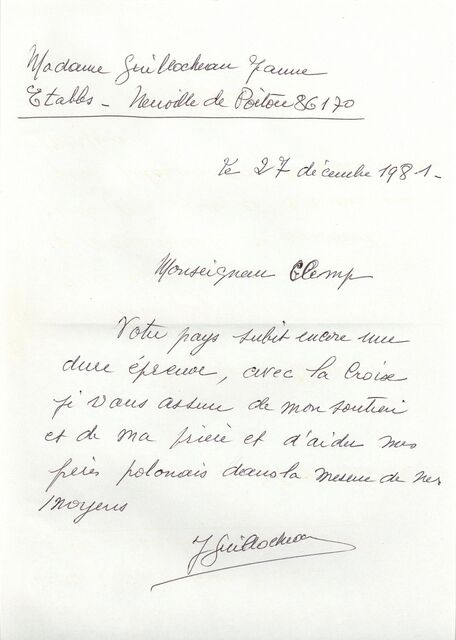 Madame Guillocheau Janne
Etables - Neuville de Poitou 86170
le 27 décembre 1981-
Monseigneur Glemp
Votre pays subit encore une
dure épreuve, avec la Croix
je vous assure de mon soutien
et de ma prière et d'aider mes
frères polonais dans la mesure de mes
moyens
J Guillocheau